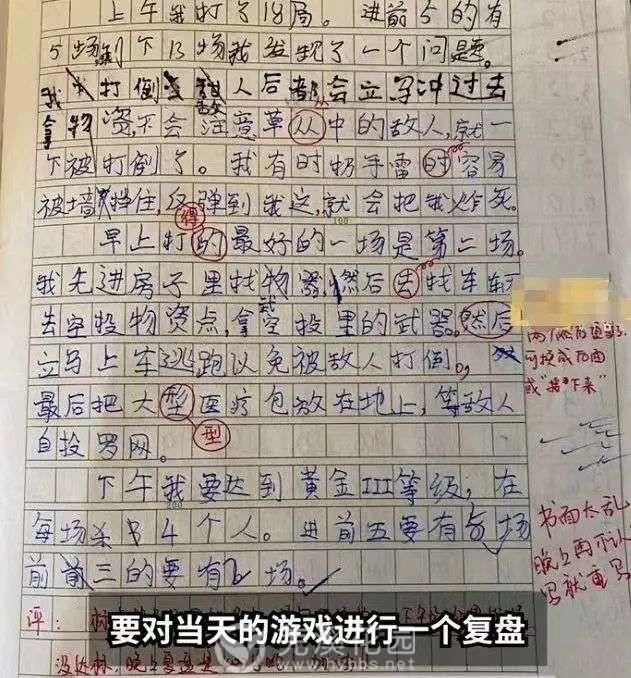 上午我打了18局。进前5的有
5场剩下13场我发现了一个问题。
我打倒敌人后都会立马冲过去
拿物资,不会注意草从中的敌人,就一
下被打倒了。我有时扔手雷时容易
被墙挡住,反弹到我这,就会把我炸死。
得
早上打的最好的一场是第二场。
我先进房子里找物器,然后去找车车
去空投物资点,拿空投里的武器。然后
立马上车逃跑以免被敌人打倒。
最后把大型医疗包放在地上,等敌人
型
自投罗网。
下午我要达到黄金III等级,在
每场杀4个人。进前五要有场
前三的要有场。
两个然后重复了
可换成后面
或"接下来"
书面太乱
晚上再不认
写就重写
评:
要对当天的游戏进行一个复盘